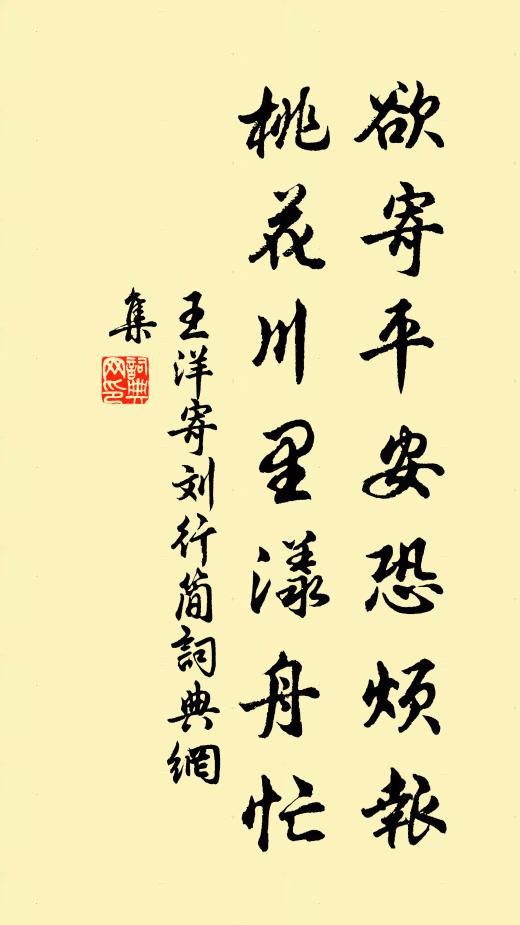 欲寄平安恐烦報
桃花川里漾舟忙
王洋寄刘行简詞典網
集
詞典
网印